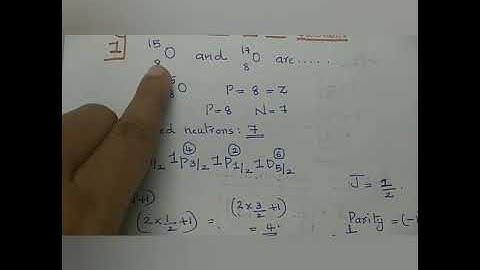 1] ¹⁵₈O and ¹⁷₈O are.....
₈O P = 8 = Z
P = 8 N = 7
neutrons: 7
④ ② ⑥
1P3/2 1P1/2 1D5/2
J = 1/2
(2×1/2+1) = (2×3/2+1)
= 4
Parity = (-